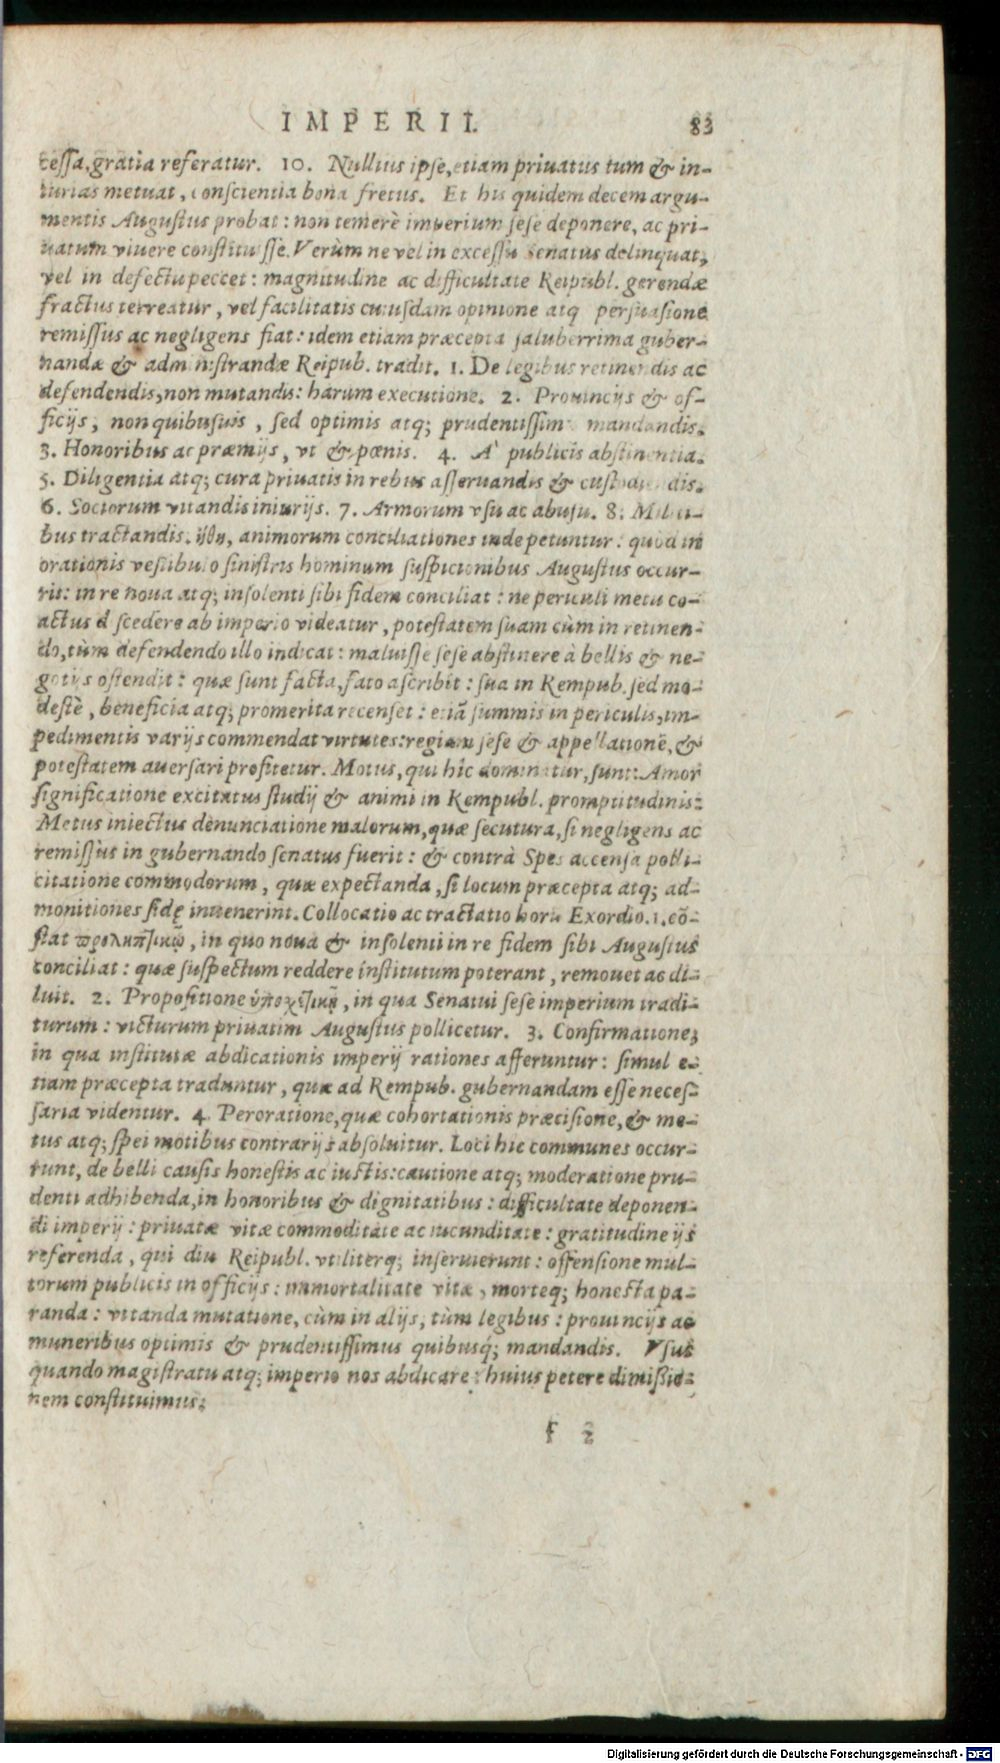 IMPERII. 83
cessa, gratia referatur. 10. Nullius ipse, etiam privatus tum & in-
iurias metuat, conscientia bona fretus. Et his quidem decem argu-
mentis Augustus probat: non temerè imperium sese deponere, ac pri-
uatum viuere constituisse. Verùm ne vel in excessu Senatus delinquat,
vel in defectu peccet: magnitudine ac difficultate Reipubl. gerendæ
fractus terreatur, vel facilitatis cuiusdam opinione atq persuasione
remissus ac negligens fiat: idem etiam præcepta saluberrima guber-
nandæ & administrandæ Reipub. tradit. 1. De legibus retinendis ac
defendendis, non mutandis: harum executione. 2. Prouincijs & of-
ficijs, non quibusuis, sed optimis atq; prudentissimis mandandis.
3. Honoribus ac præmijs, vt & pœnis. 4. A` publicis abstinentia.
5. Diligentia atq; cura priuatis in rebus asseruandis & custodiendis.
6. Sociorum vitandis iniurijs. 7. Armorum vsu ac abusu. 8. Militi-
bus tractandis. ἤθη, animorum conciliationes inde petuntur: quod in
orationis vestibulo sinistris hominum suspicionibus Augustus occur-
rit: in re noua atq; insolenti sibi fidem conciliat: ne periculi metu co-
actus discedere ab imperio videatur, potestatem suam cùm in retinen-
do, tùm defendendo illo indicat: maluisse sese abstinere à bellis & ne-
gotijs ostendit: quæ sunt facta, fato ascribit: sua in Rempub. sed mo-
destè, beneficia atq; promerita recenset: etiã summis in periculis, im-
pedimentis varijs commendat virtutes: regiam sese & appellationẽ, &
potestatem auersari profitetur. Motus, qui hîc dominatur, sunt: Amor
significatione excitatus studij & animi in Rempubl. promptitudinis:
Metus iniectus denunciatione malorum, quæ secutura, si negligens ac
remissus in gubernando senatus fuerit: & contrà Spes accensa polli-
citatione commodorum, quæ expectanda, si locum præcepta atq; ad-
monitiones fidę inuenerint. Collocatio ac tractatio horũ Exordio. 1. cõ-
stat προληπτικῷ, in quo noua & insolenti in re fidem sibi Augustus
conciliat: quæ suspectum reddere institutum poterant, remouet ac di-
luit. 2. Propositione ὑποχετικῇ, in qua Senatui sese imperium tradi-
turum: victurum priuatim Augustus pollicetur. 3. Confirmatione,
in qua institutæ abdicationis imperij rationes afferuntur: simul e-
tiam præcepta traduntur, quæ ad Rempub. gubernandam esse neces-
saria videntur. 4 Peroratione, quæ cohortationis præcisione, & me-
tus atq; spei motibus contrarijs absoluitur. Loci hic communes occur-
runt, de belli causis honestis ac iustis: cautione atq; moderatione pru-
denti adhibenda, in honoribus & dignitatibus: difficultate deponen-
di imperij: priuatæ vitæ commoditate ac iucunditate: gratitudine ijs
referenda, qui diu Reipubl. vtiliterq; inseruierunt: offensione mul-
torum publicis in officijs: immortalitate vitæ, morteq; honesta pa-
randa: vitanda mutatione, cùm in alijs, tùm legibus: prouincijs ac
muneribus optimis & prudentissimus quibusq́; mandandis. Vsus
quando magistratu atq; imperio nos abdicare: huius petere dimissio-
nem constituimus.
f 2
Digitalisierung gefördert durch die Deutsche Forschungsgemeinschaft - DFG